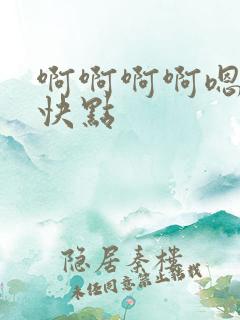 啊啊啊啊嗯
快點
隐居秦楼
未经同意禁止转载